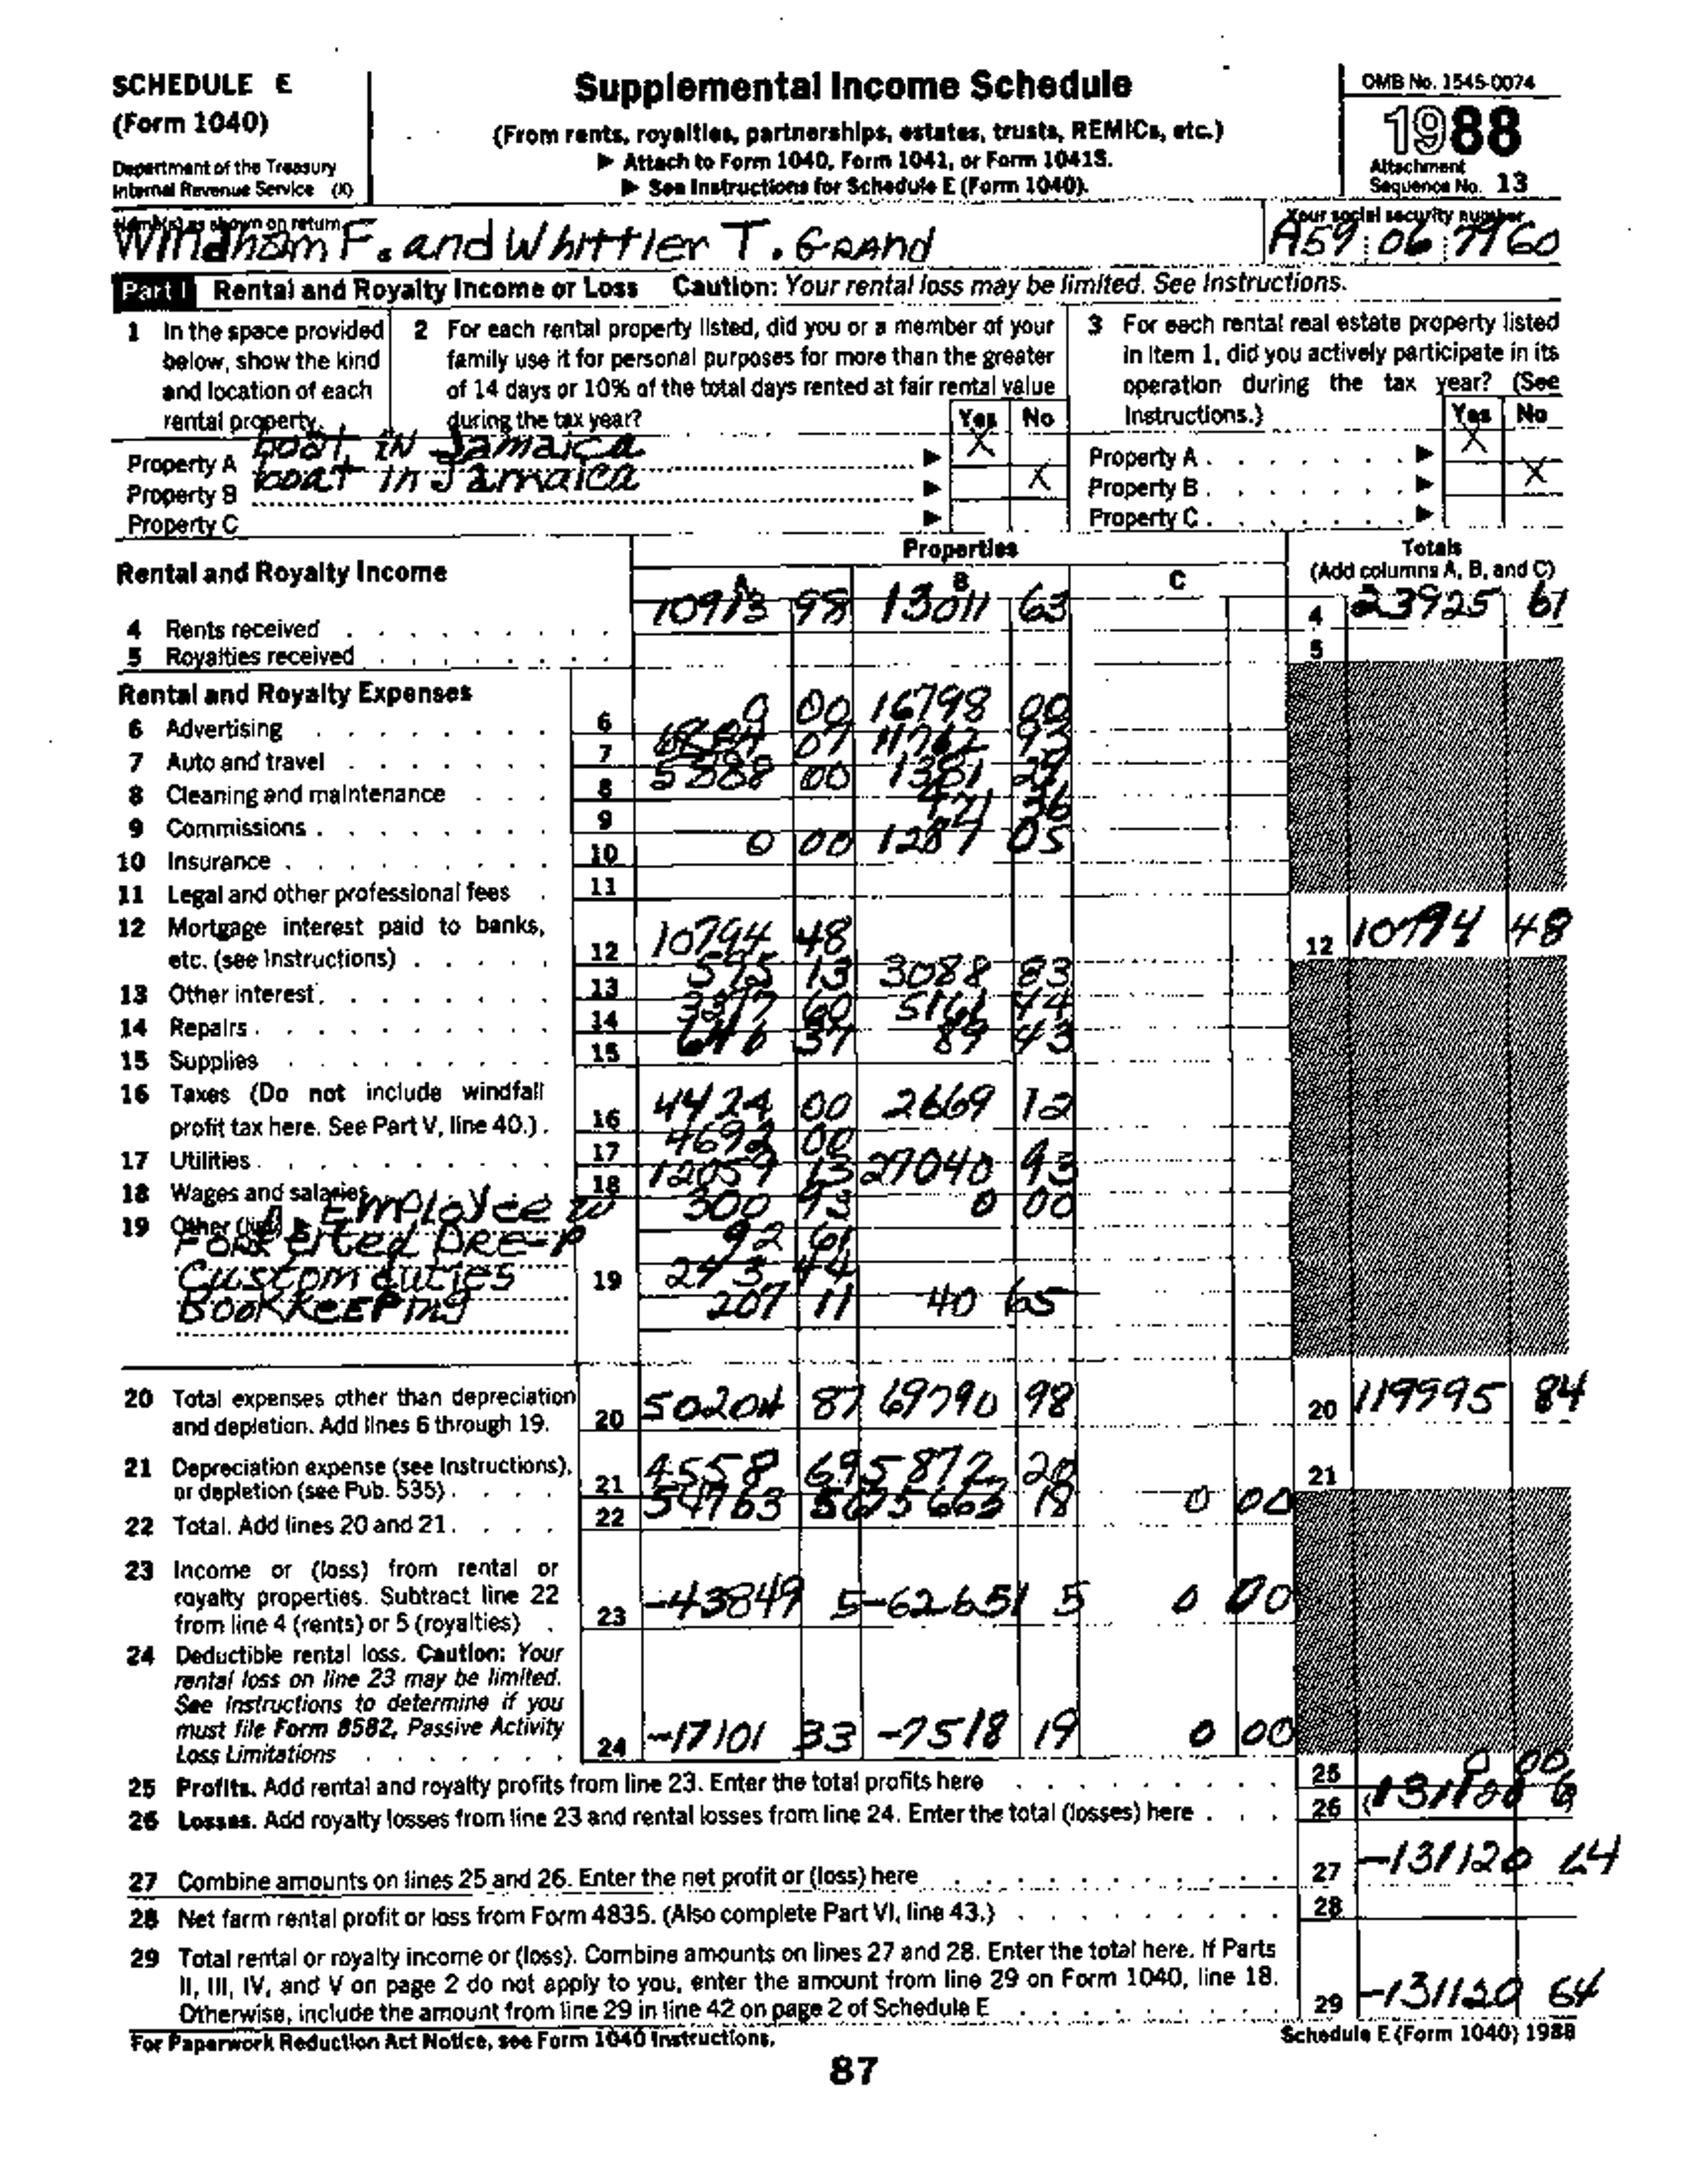 SCHEDULE E
(Form 1040)
Department of the Treasury
Internal Revenue Service (X)
Supplemental Income Schedule
(From rents, royalties, partnerships, estates, trusts, REMICs, etc.)
▶ Attach to Form 1040, Form 1041, or Form 1041S.
▶ See Instructions for Schedule E (Form 1040).
OMB No. 1545-0074
1988
Attachment
Sequence No. 13
Name(s) as shown on return
Windham F. and Whittler T. GRAND
Your social security number
A59 06 7960
Part I Rental and Royalty Income or Loss Caution: Your rental loss may be limited. See Instructions.
1 In the space provided below, show the kind and location of each rental property.
2 For each rental property listed, did you or a member of your family use it for personal purposes for more than the greater of 14 days or 10% of the total days rented at fair rental value during the tax year?
3 For each rental real estate property listed in Item 1, did you actively participate in its operation during the tax year? (See Instructions.)
Yes No
Yes No
Property A boat IN Jamaica ▶ X
Property A ▶ X
Property B boat in Jamaica ▶ X
Property B ▶ X
Property C ▶
Property C ▶
Rental and Royalty Income
Properties
A B C
Totals
(Add columns A, B, and C)
4 Rents received 10913 98 13011 63 4 23925 61
5 Royalties received 5
Rental and Royalty Expenses
6 Advertising 6 0 00 16798 00
7 Auto and travel 7 07 11762 93
8 Cleaning and maintenance 8 5388 00 1381
9 Commissions 9 421 36
10 Insurance 10 0 00 1287 05
11 Legal and other professional fees 11
12 Mortgage interest paid to banks, etc. (see Instructions) 12 10794 48 12 10794 48
13 Other interest 13 595 13 3088 83
14 Repairs 14 60 5161 44
15 Supplies 15 37 89 43
16 Taxes (Do not include windfall profit tax here. See Part V, line 40.) 16 4424 00 2669 12
17 Utilities 17 4692 00
18 Wages and salaries 18 12059 13 27040 93
19 Other (list) ▶ Employee 300 93 0 00
Forfeited PRE-P 92 61
Custom duties 19 273 44
BookKeEPing 207 11 40 65
20 Total expenses other than depreciation and depletion. Add lines 6 through 19. 20 50204 87 69790 98 20 119995 84
21 Depreciation expense (see Instructions), or depletion (see Pub. 535) 21 4558 69 5872 20 21
22 Total. Add lines 20 and 21 22 54763 56 75663 18 0 00
23 Income or (loss) from rental or royalty properties. Subtract line 22 from line 4 (rents) or 5 (royalties) 23 -43849 5 -62651 5 0 00
24 Deductible rental loss. Caution: Your rental loss on line 23 may be limited. See Instructions to determine if you must file Form 8582, Passive Activity Loss Limitations 24 -17101 33 -7518 19 0 00
25 Profits. Add rental and royalty profits from line 23. Enter the total profits here 25 0 00
26 Losses. Add royalty losses from line 23 and rental losses from line 24. Enter the total (losses) here 26 (131120 6)
27 Combine amounts on lines 25 and 26. Enter the net profit or (loss) here 27 -131120 64
28 Net farm rental profit or loss from Form 4835. (Also complete Part VI, line 43.) 28
29 Total rental or royalty income or (loss). Combine amounts on lines 27 and 28. Enter the total here. If Parts II, III, IV, and V on page 2 do not apply to you, enter the amount from line 29 on Form 1040, line 18. Otherwise, include the amount from line 29 in line 42 on page 2 of Schedule E 29 -131120 64
For Paperwork Reduction Act Notice, see Form 1040 Instructions.
Schedule E (Form 1040) 1988
87